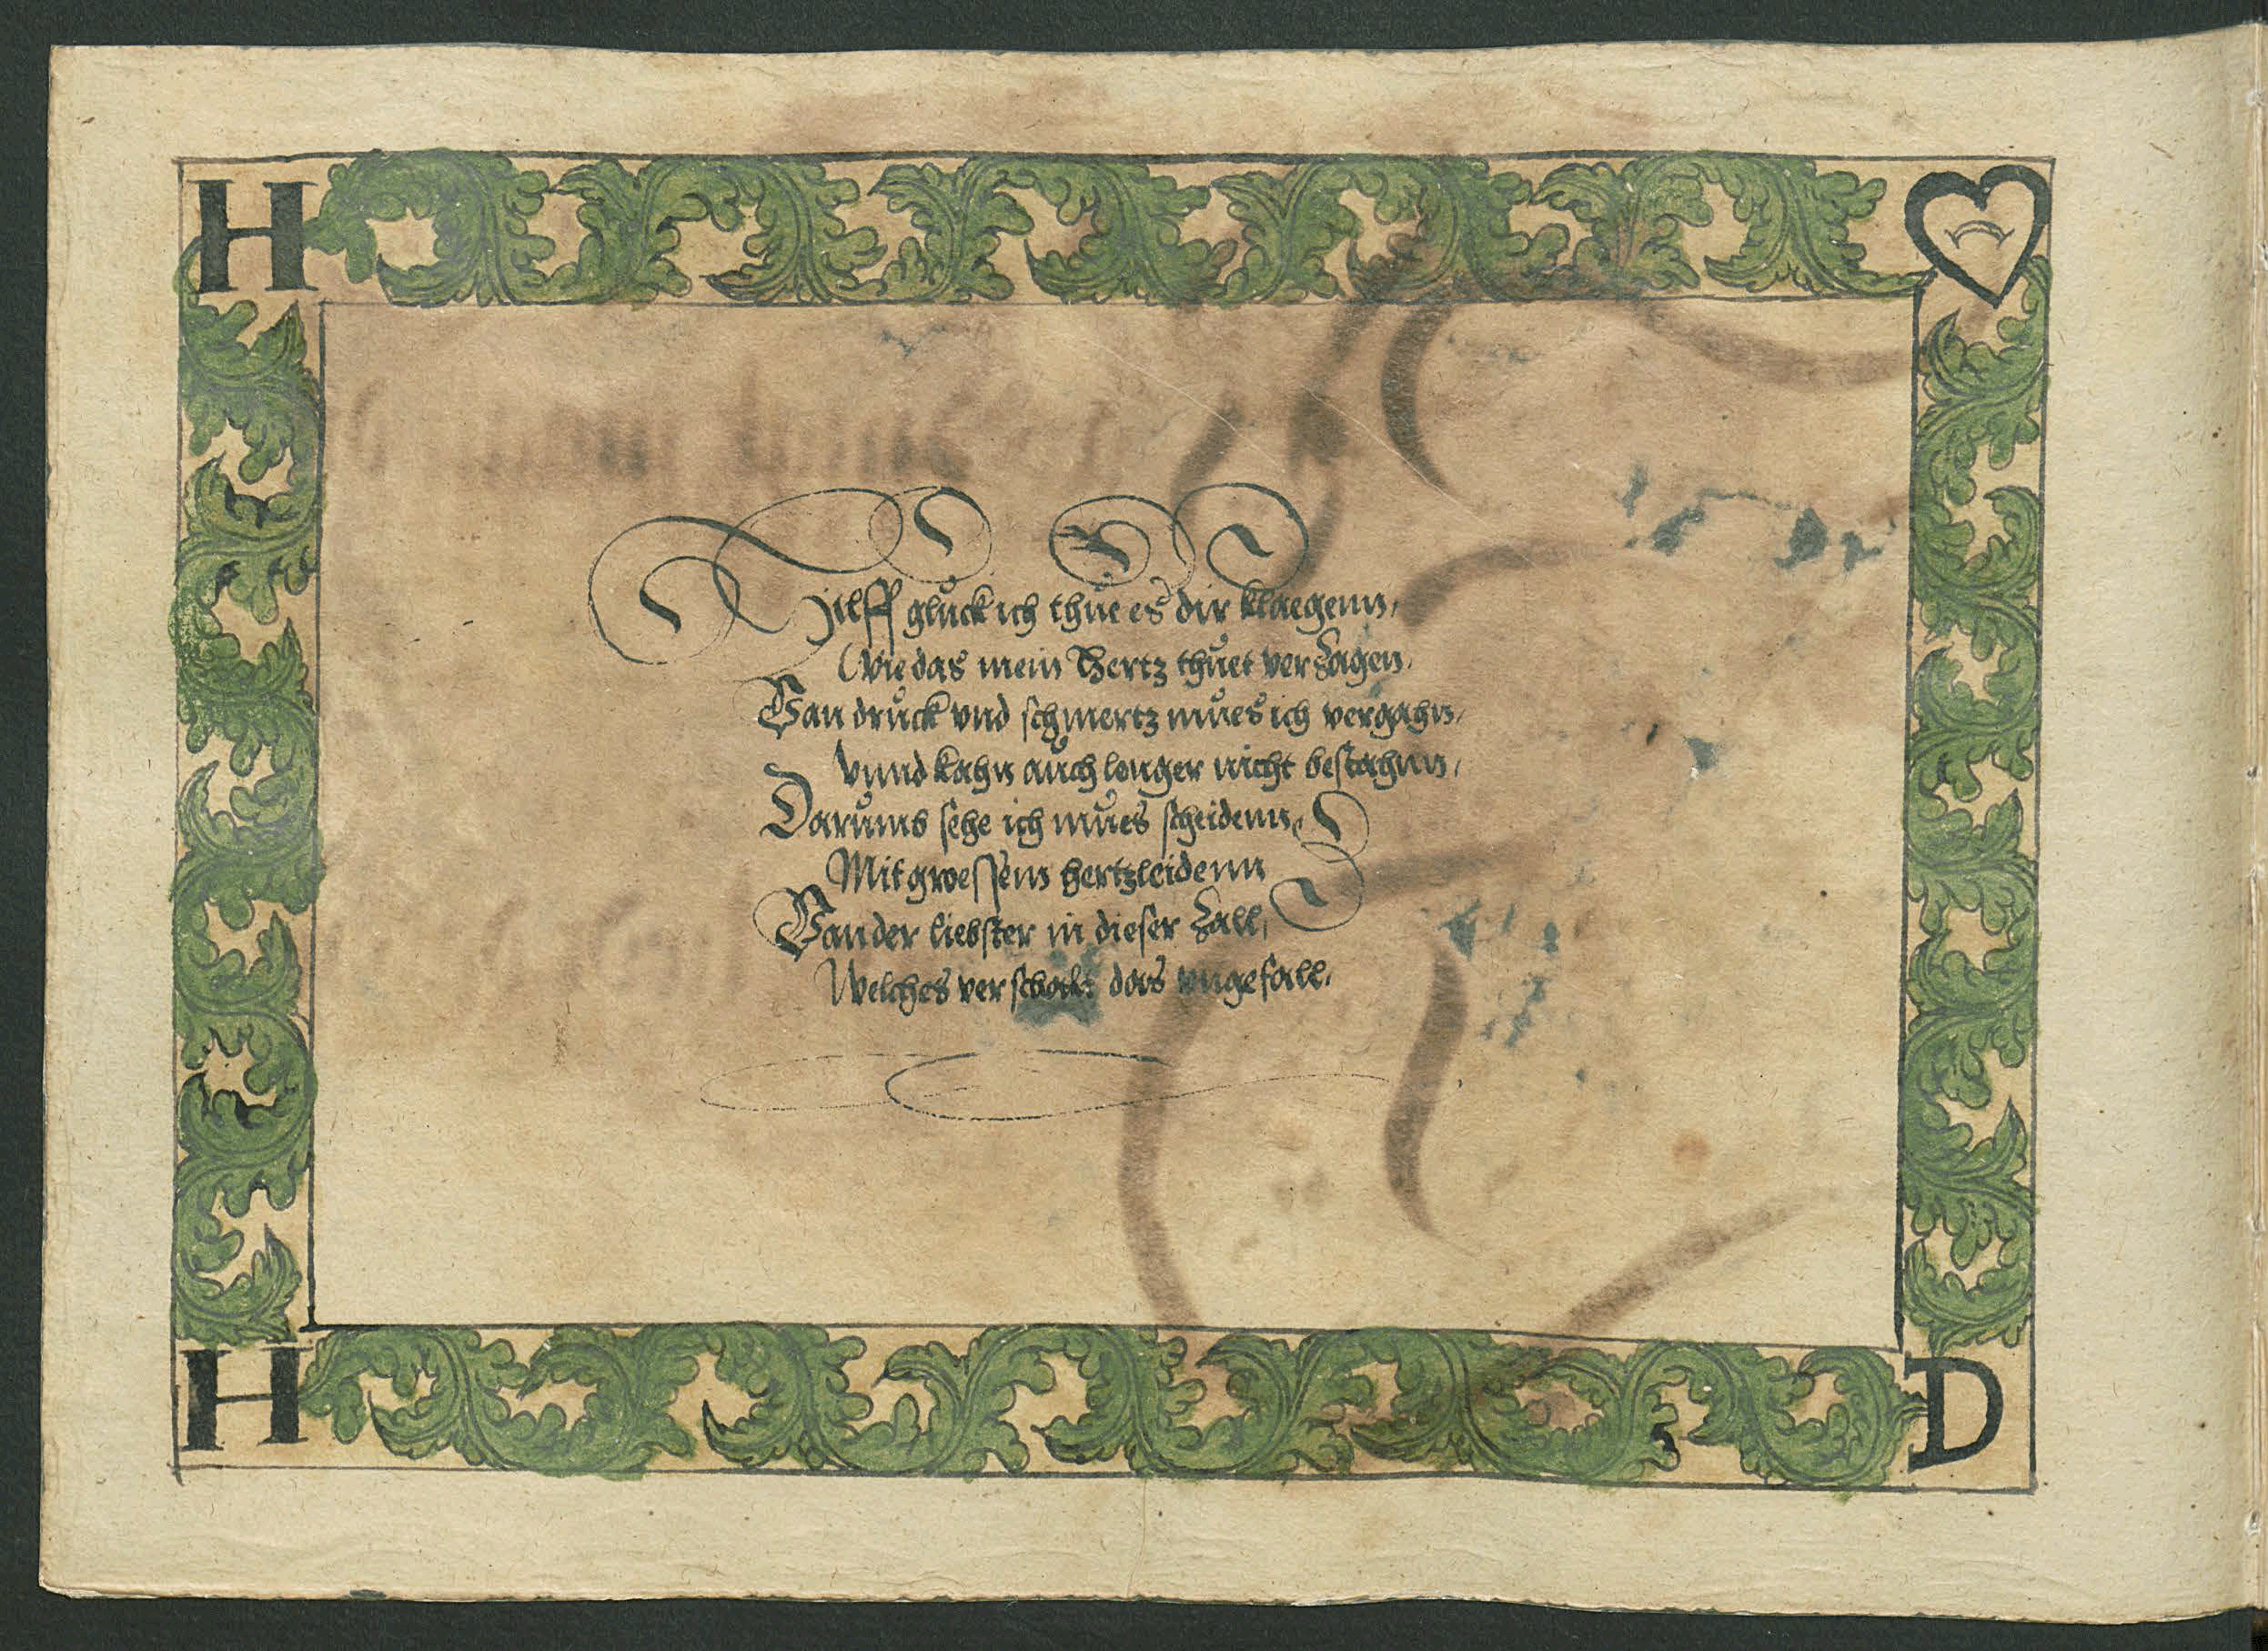 H
Hilff glůck ich thůe es dir klaegenn,
Wie das mein Hertz thůet verzagen,
Van drůck vnd schmertz můes ich vergahn,
Vnnd kahn aůch lenger nicht bestahnn,
Darůmb sehe ich můes scheidenn,
Mit groessem hertzleidenn
Van der liebster in dieser zall,
Welches verschafft das vngefall,
H
D